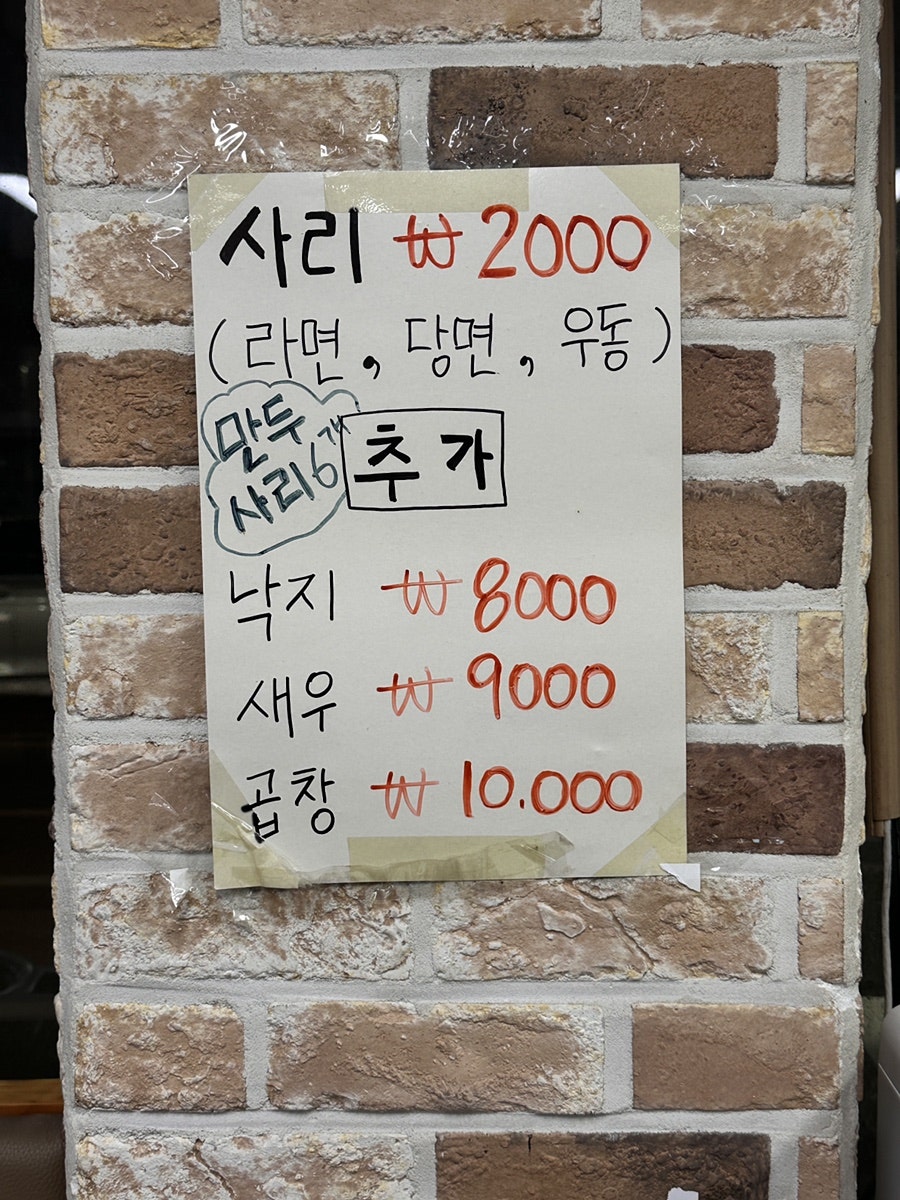 사리 ₩2000
(라면, 당면, 우동)
만두
사리6개
추가
낙지 ₩8000
새우 ₩9000
곱창 ₩10.000